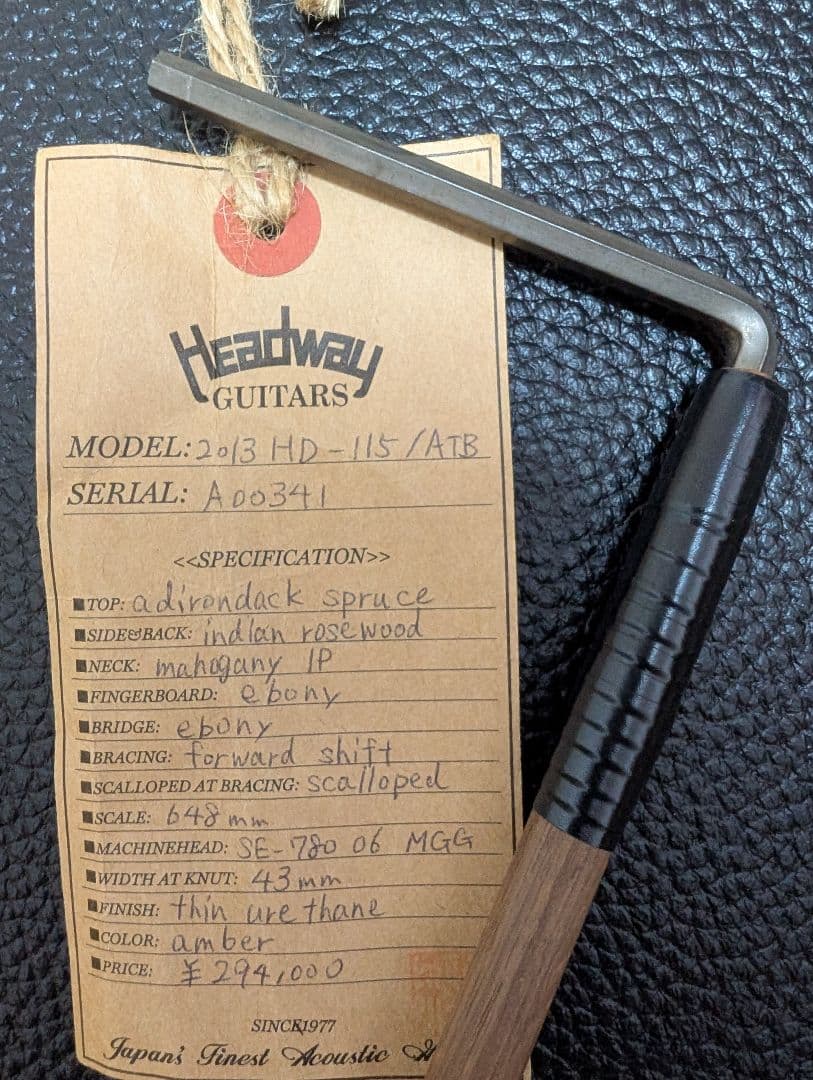 Headway
GUITARS
MODEL: 2013 HD-115/ATB
SERIAL: A00341
<<SPECIFICATION>>
■TOP: adirondack spruce
■SIDE&BACK: indian rosewood
■NECK: mahogany 1P
■FINGERBOARD: ebony
■BRIDGE: ebony
■BRACING: forward shift
■SCALLOPED AT BRACING: scalloped
■SCALE: 648mm
■MACHINEHEAD: SE-780 06 MGG
■WIDTH AT KNUT: 43mm
■FINISH: thin urethane
■COLOR: amber
■PRICE: ¥294,000
SINCE1977
Japan's Finest Acoustic